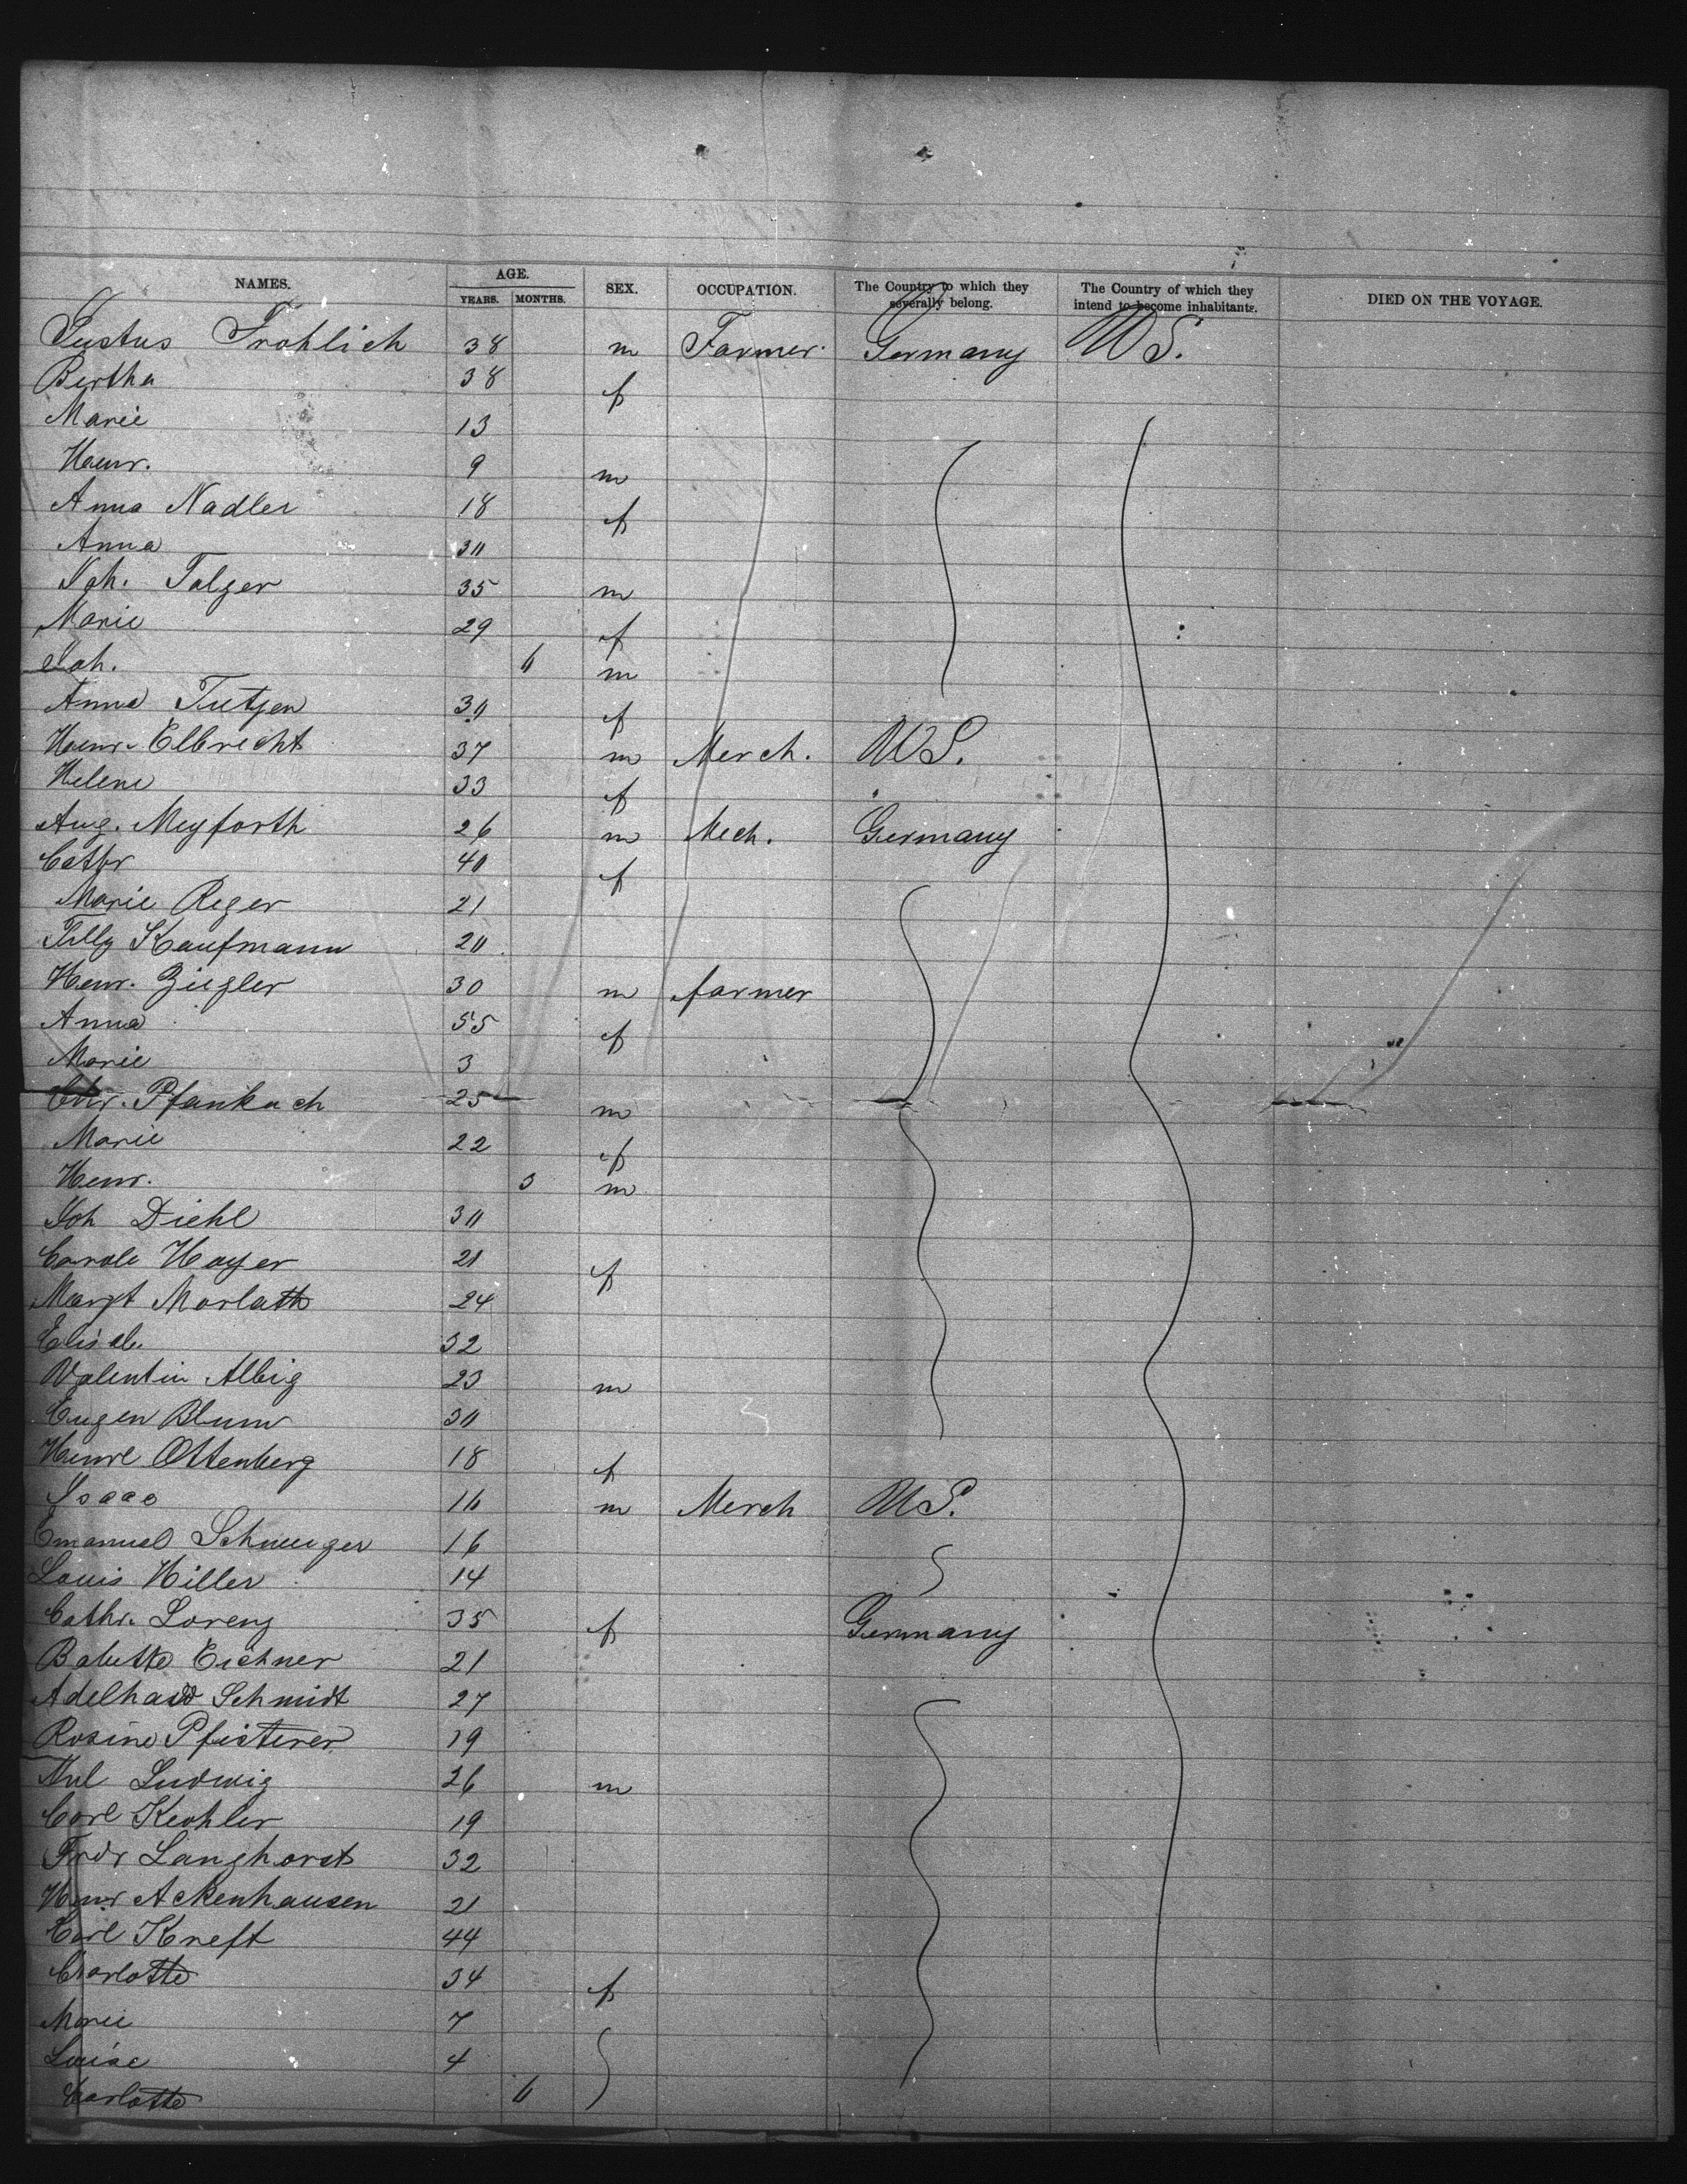 NAMES. AGE. YEARS. MONTHS. SEX. OCCUPATION. The Country to which they severally belong. The Country of which they intend to become inhabitants. DIED ON THE VOYAGE.
Justus Frohlich 38 m Farmer. Germany U S.
Bertha 38 f
Marie 13
Henr. 9 m
Anna Nadler 18 f
Anna 30
Joh. Talger 35 m
Marie 29 f
Joh. 6 m
Anna Tutjen 30 f
Henr. Elbrecht 37 m Merch. U S.
Helene 33 f
Aug. Meyforth 26 m Mech. Germany
Cathr 40 f
Marie Reger 21
Tilly Kaufmann 20
Henr. Ziegler 30 m farmer
Anna 55 f
Marie 3
Chr. Pfankuch 25 m
Marie 22 f
Henr. 3 m
Joh Diehl 30
Carole Hayer 21 f
Margt Morlath 24
Elisab. 32
Valentin Albig 23 m
Eugen Blum 30
Henre Ottenberg 18 f
Isaac 16 m Merch U S.
Emanuel 16
Louis Hiller 14
Cathr. Lorenz 35 f Germany
Babette Eichner 21
Adelhaid Schmidt 27
Rosine Pfisterer 19
Ludwig 26 m
Carl Keohler 19
Fredr Langhorst 32
Henr Ackenhausen 21
Carl Kreft 44
Charlotte 34 f
Marie 7
Louise 4
Charlotte 6